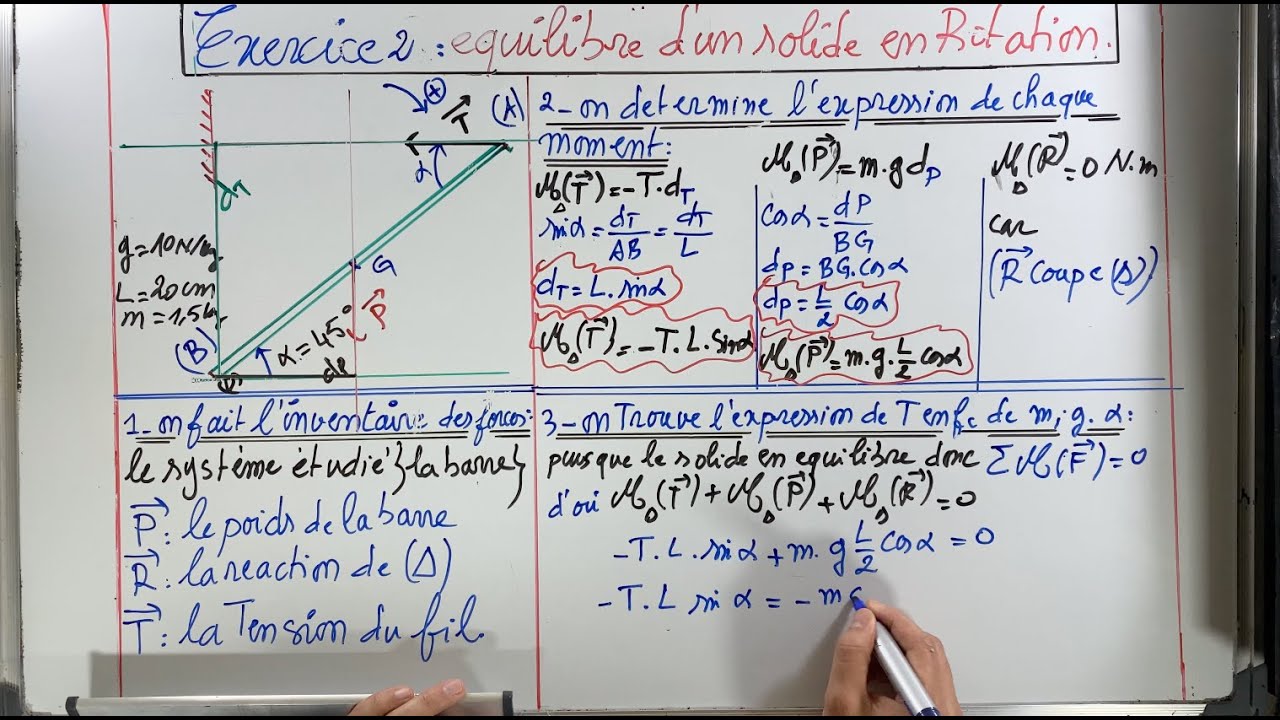 Exercice 2 : equilibre d'un solide en Rotation.
(A)
T⃗
α
dT
G
P⃗
g=10N/kg
L=20cm
m=1,5kg
(B)
α=45°
dP
2-on determine l'expression de chaque
moment:
M_Δ(T⃗)=-T.dT
sinα=dT/AB=dT/L
dT=L.sinα
M_Δ(T⃗)=-T.L.Sinα
M_Δ(P⃗)=m.g dP
cosα=dP/BG
dP=BG.cosα
dP=L/2 cosα
M_Δ(P⃗)=m.g.L/2 cosα
M_Δ(R⃗)=0 N.m
car
(R⃗ coupe (Δ))
1-on fait l'inventaire des forces:
le système étudié {la barre}
P⃗: le poids de la barre
R⃗: la reaction de (Δ)
T⃗: la Tension du fil.
3-on Trouve l'expression de T en fc de m, g. α:
puisque le solide en equilibre donc ΣM(F⃗)=0
d'où M_Δ(T⃗)+M_Δ(P⃗)+M_Δ(R⃗)=0
-T.L.sinα+m.g L/2 cosα=0
-T.L sinα=-mg